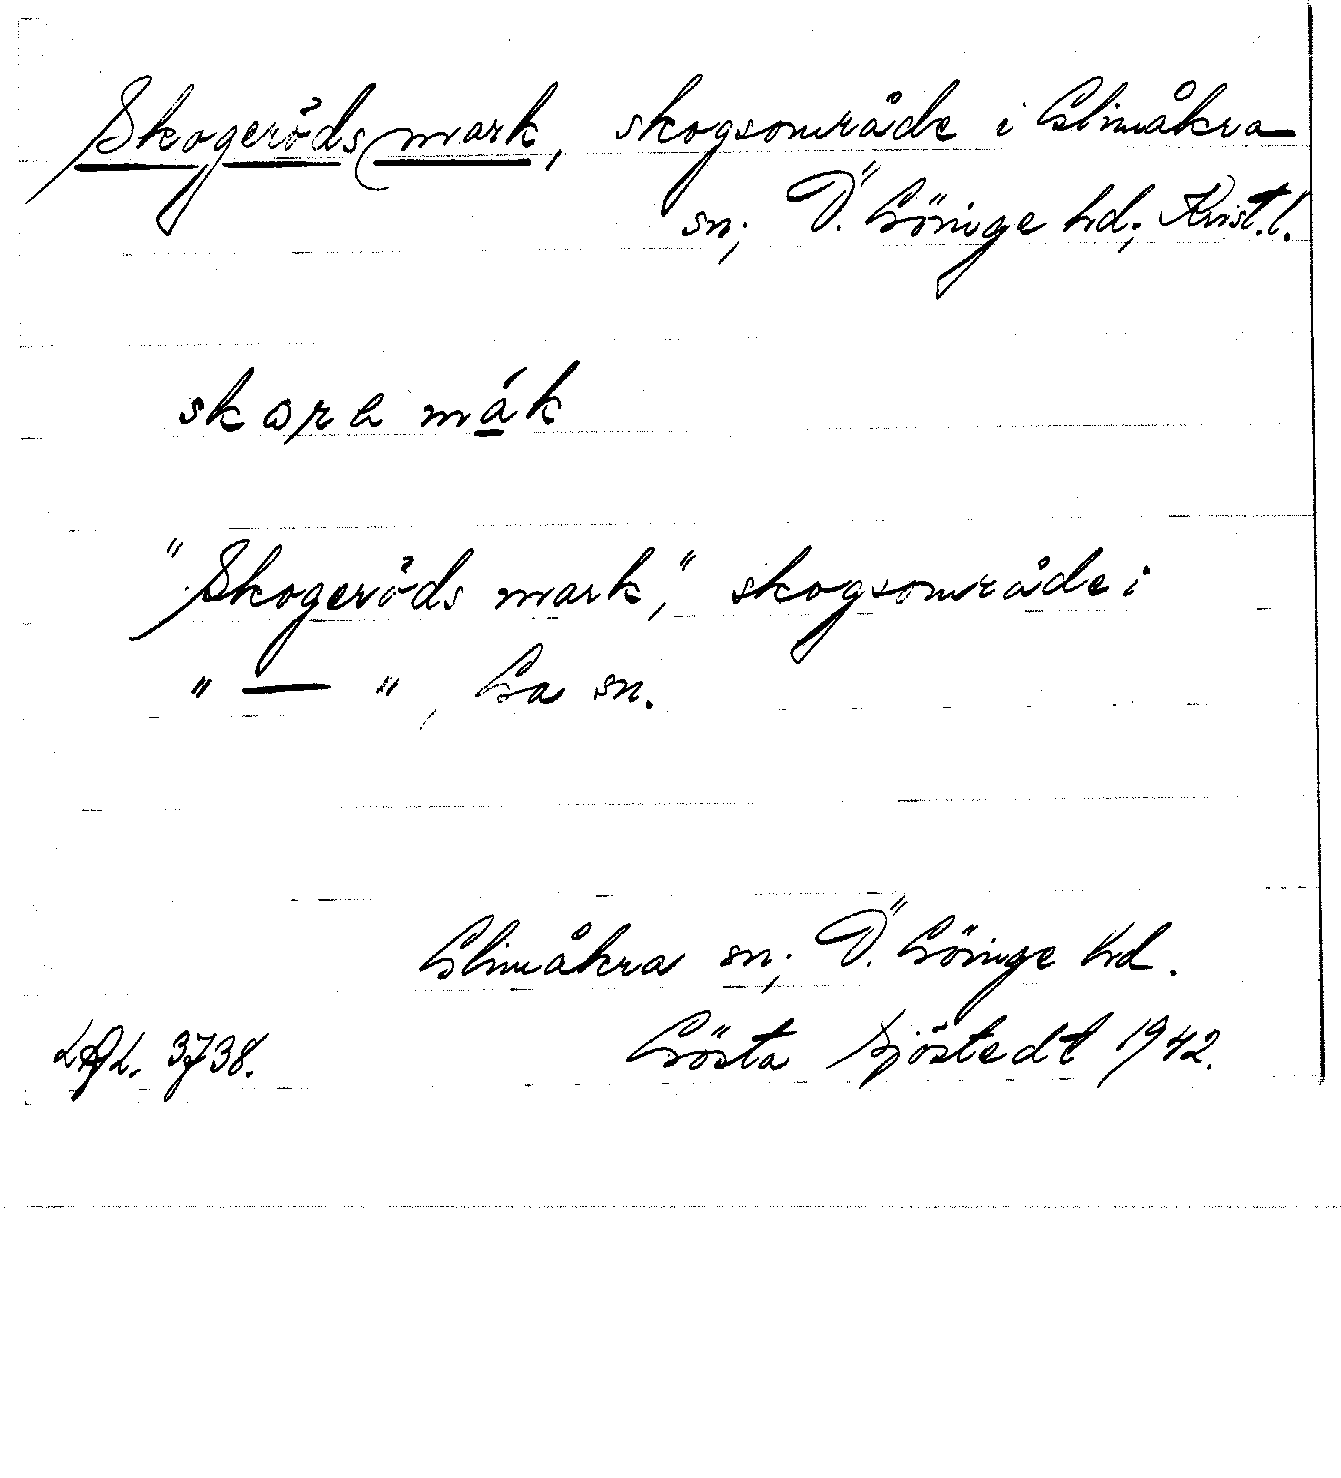 Skogeröds mark, skogsområde i Glimåkra
sn; Ö. Göinge hd; Krist. l.
skɷrɑ mák
"Skogeröds mark," skogsområde i
" — ", Ga sn.
Glimåkra sn; Ö. Göinge hd.
LAL. 3738. Gösta Sjöstedt 1942.